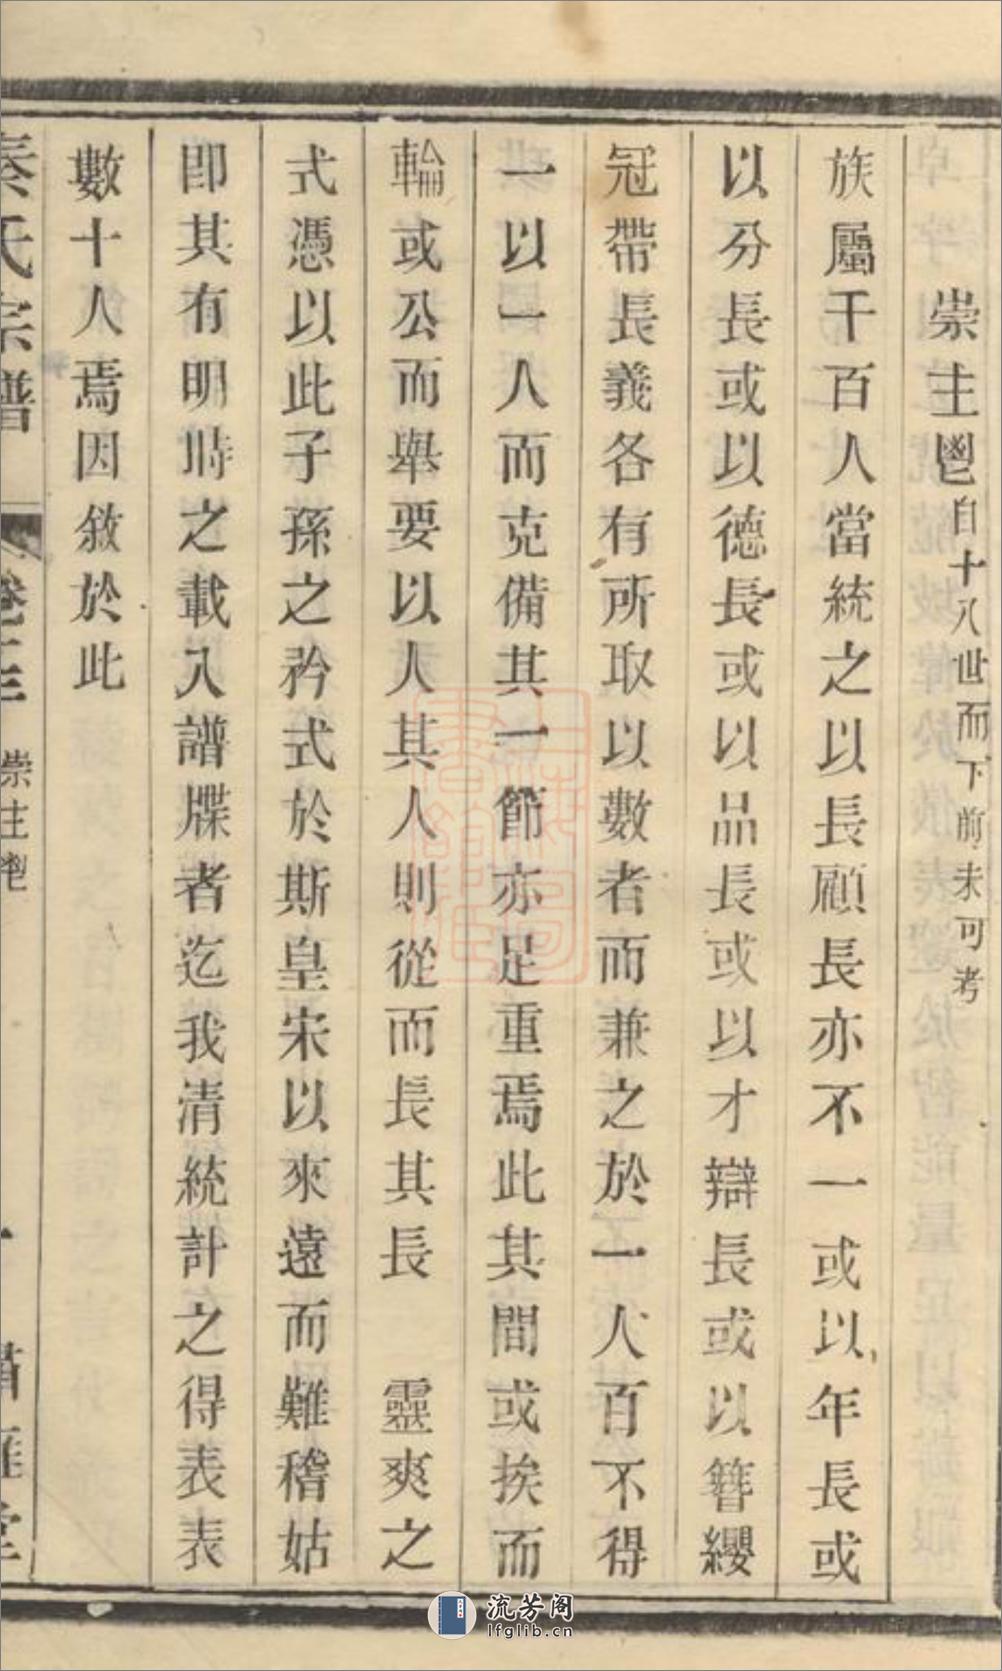 崇主鬯自十八世而下前未可考
族屬千百人當統之以長顧長亦不一或以年長或
以分長或以德長或以品長或以才辯長或以簪纓
冠帶長義各有所取以數者而兼之於一人百不得
一以一人而克備其一節亦足重焉此其間或挨而
輪或公而舉要以人其人則從而長其長 靈爽之
式憑以此子孫之矜式於斯皇宋以來遠而難稽姑
卽其有明時之載入譜牒者迄我清統計之得表表
數十人焉因敘於此
秦氏宗譜 卷三 崇主鬯
流芳阁
lfglib.cn